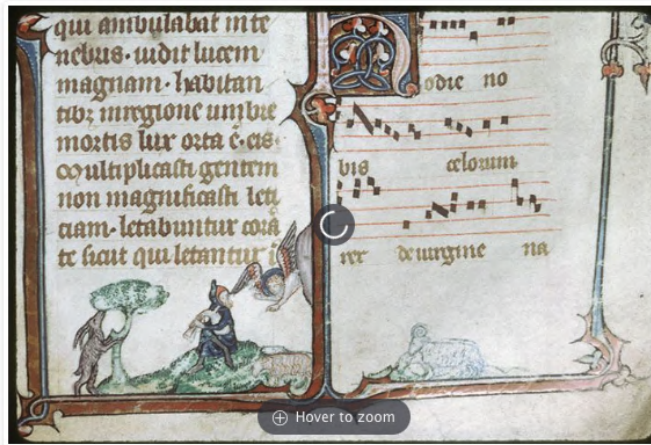 qui ambulabat in te
nebris · uidit lucem
magnam · habitan
tibz in regione umbre
mortis lux orta ē · eis ·
Multiplicasti gentem
non magnificasti leti
ciam · letabuntur corā
te sicut qui letantur i
Hodie no
bis celorum
rex de uirgine na
Hover to zoom